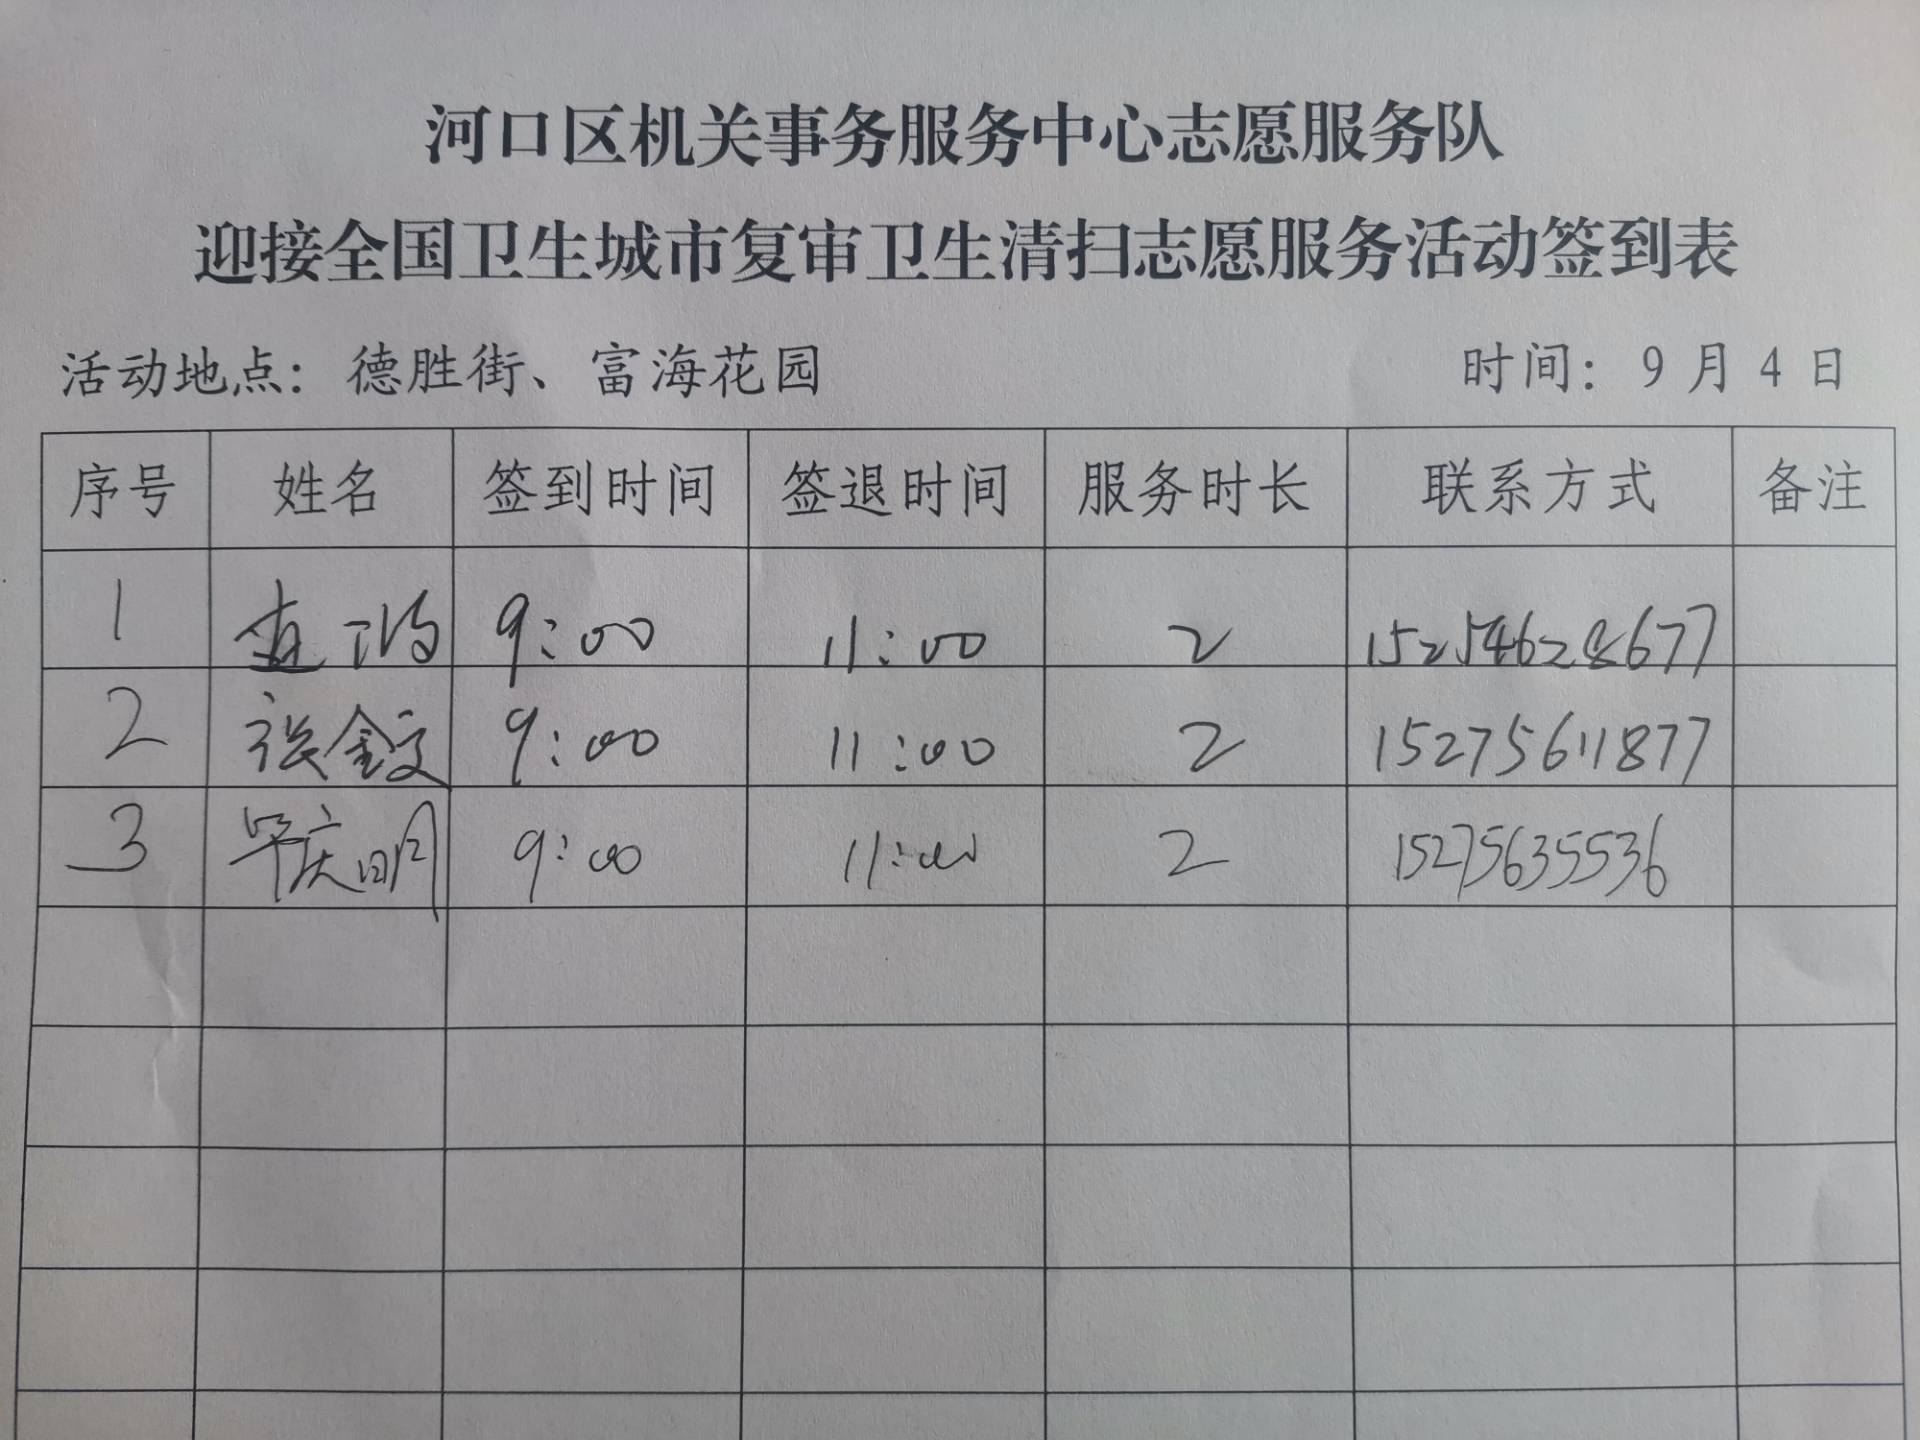 河口区机关事务服务中心志愿服务队
迎接全国卫生城市复审卫生清扫志愿服务活动签到表
活动地点：德胜街、富海花园 时间：9月4日
序号 姓名 签到时间 签退时间 服务时长 联系方式 备注
1 9:00 11:00 2 15254628677
2 张鑫文 9:00 11:00 2 15275611877
3 毕庆明 9:00 11:00 2 15275635536